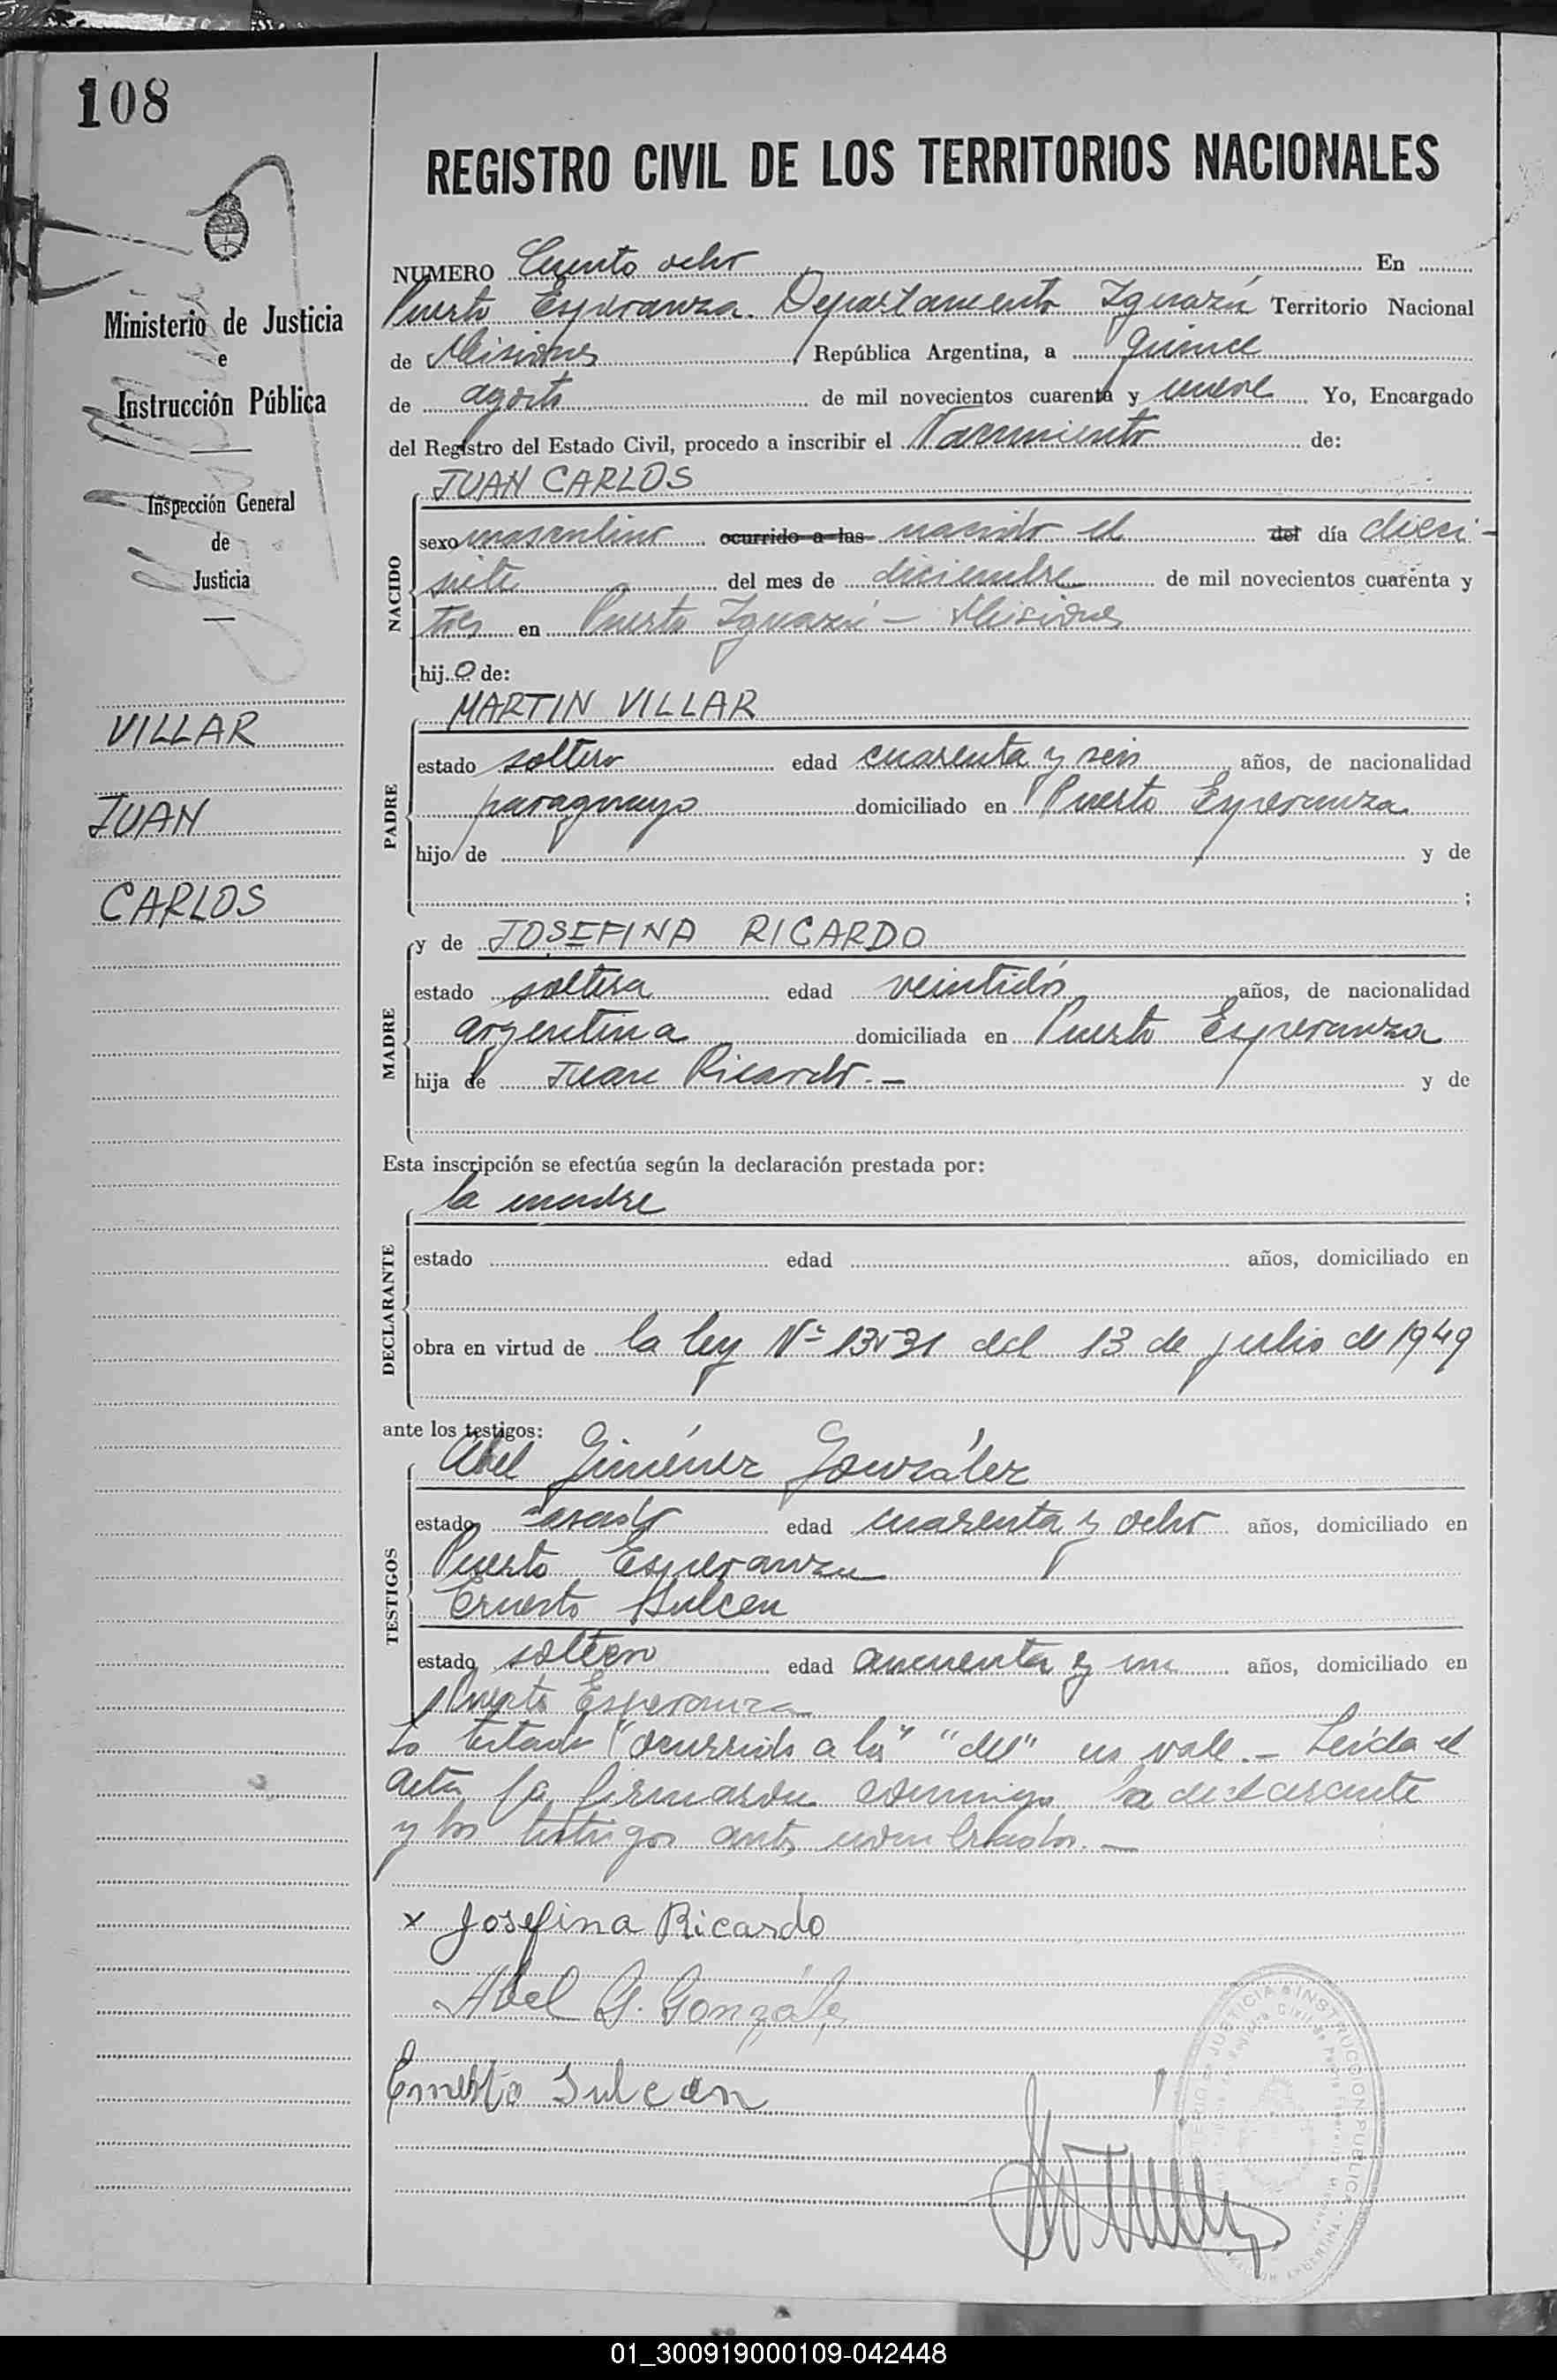 108
REGISTRO CIVIL DE LOS TERRITORIOS NACIONALES
Ministerio de Justicia
e
Instrucción Pública
Inspección General
de
Justicia
VILLAR
JUAN
CARLOS
NUMERO Ciento ocho En
Puerto Esperanza. Departamento Iguazú Territorio Nacional
de Misiones República Argentina, a quince
de agosto de mil novecientos cuarenta y nueve Yo, Encargado
del Registro del Estado Civil, procedo a inscribir el Nacimiento de:
NACIDO
JUAN CARLOS
sexo masculino ocurrido a las nacido el del día dieci-
siete del mes de diciembre de mil novecientos cuarenta y
tres en Puerto Iguazú - Misiones
hij o de:
PADRE
MARTIN VILLAR
estado soltero edad cuarenta y seis años, de nacionalidad
paraguayo domiciliado en Puerto Esperanza
hijo de y de
;
MADRE
y de JOSEFINA RICARDO
estado soltera edad veintidós años, de nacionalidad
argentina domiciliada en Puerto Esperanza
hija de Juan Ricardo.- y de
Esta inscripción se efectúa según la declaración prestada por:
DECLARANTE
la madre
estado edad años, domiciliado en
obra en virtud de la ley Nº del 13 de julio de 1949
ante los testigos:
TESTIGOS
Abel Giménez González
estado casado edad cuarenta y ocho años, domiciliado en
Puerto Esperanza
Ernesto Sulcen
estado soltero edad cincuenta y un años, domiciliado en
Puerto Esperanza
Lo testado "ocurrido a las" "del" no vale.- Leída el
acta, la firmaron conmigo la declarante
y los testigos antes nombrados.-
x Josefina Ricardo
Abel G. González
Ernesto Sulcen
JUSTICIA E INSTRUCCION PUBLICA
01_300919000109-042448